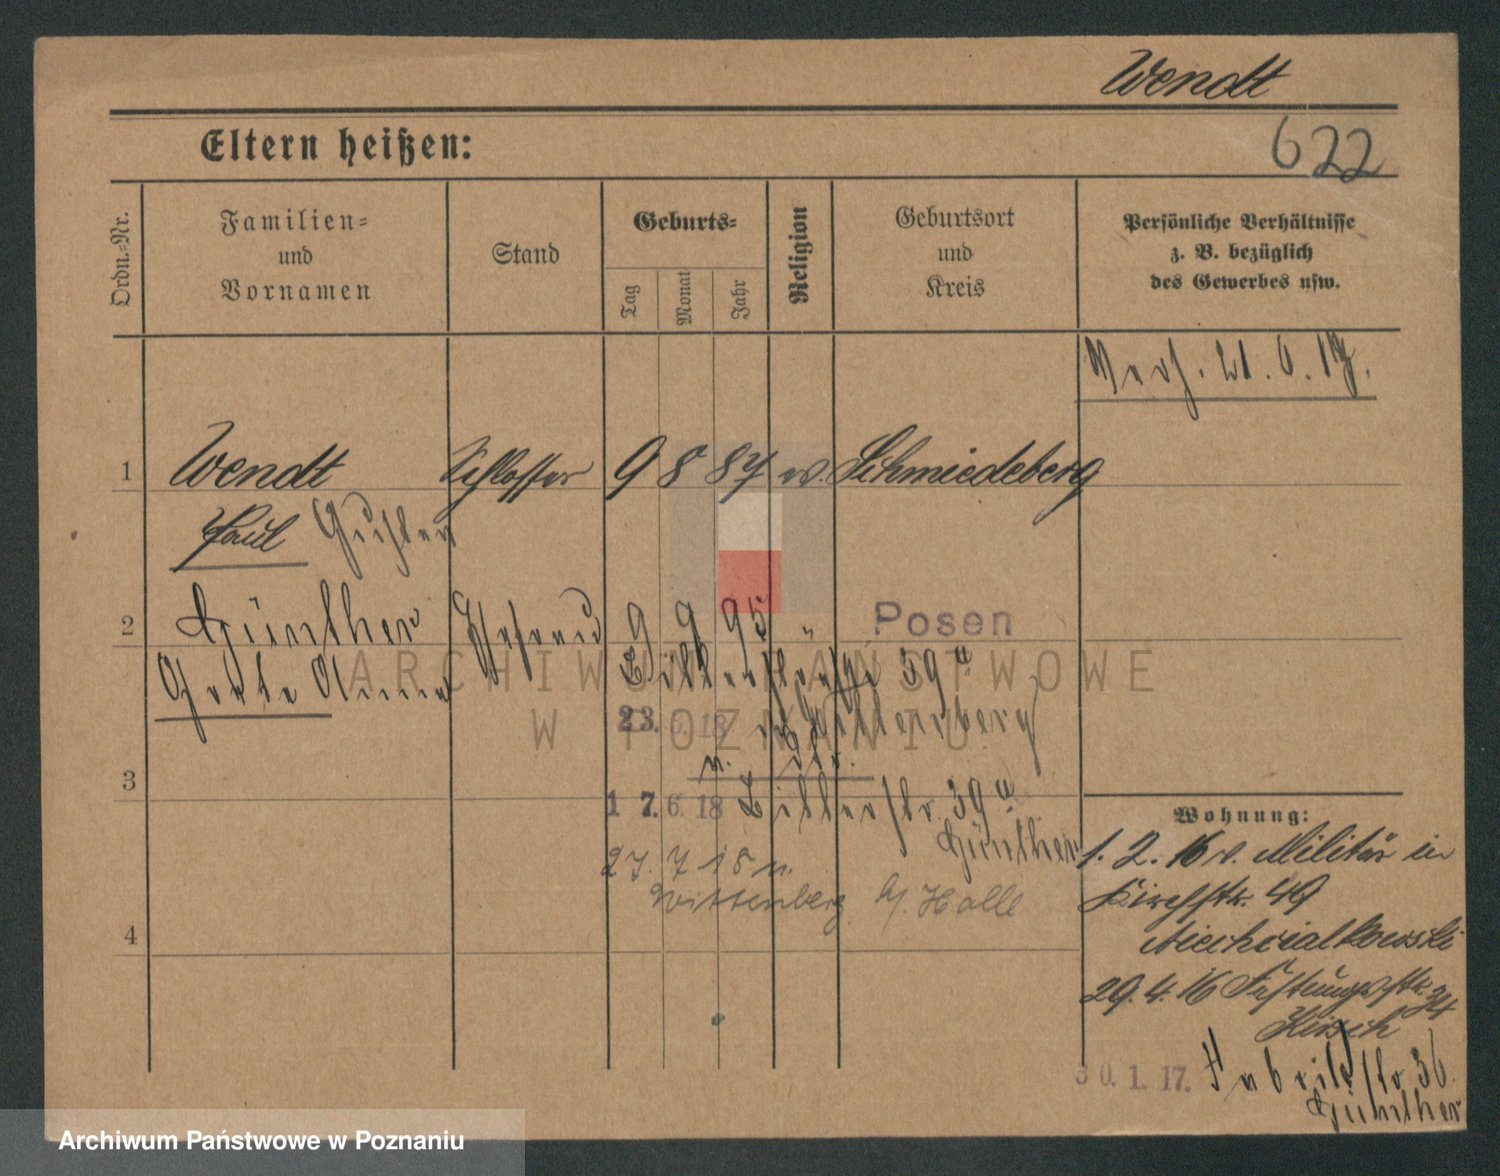 Wendt
622
Eltern heißen:
Ordn.-Nr.
Familien-
und
Vornamen
Stand
Geburts-
Tag
Monat
Jahr
Religion
Geburtsort
und
Kreis
Persönliche Verhältnisse
z. B. bezüglich
des Gewerbes usw.
Verh. 21.6.17.
1 Wendt Schlosser 9 8 87 ev. Schmiedeberg
Paul Gustav
2 Günther Ehefrau 9 9 95 " Posen
Grete Anna
39a
23. 5. 18 Wittenberg
3
1 7. 6. 18 39a
Günther
27. 7 18 n.
Wittenberg b/. Halle
4
Wohnung:
1. 2. 16 v. Militär in
Kirchstr. 49
Niechcialkowski
29. 4. 16 Festungsstr.
Kirsch
30. 1. 17. Fabrikstr 36
Günther
ARCHIWUM PAŃSTWOWE
W POZNANIU
Archiwum Państwowe w Poznaniu